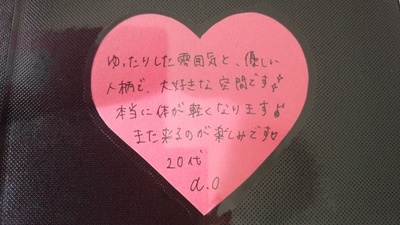 ゆったりした雰囲気と、優しい
人柄で、大好きな空間です♪
本当に体が軽くなります♪
また来るのが楽しみです♡
20代
a.O